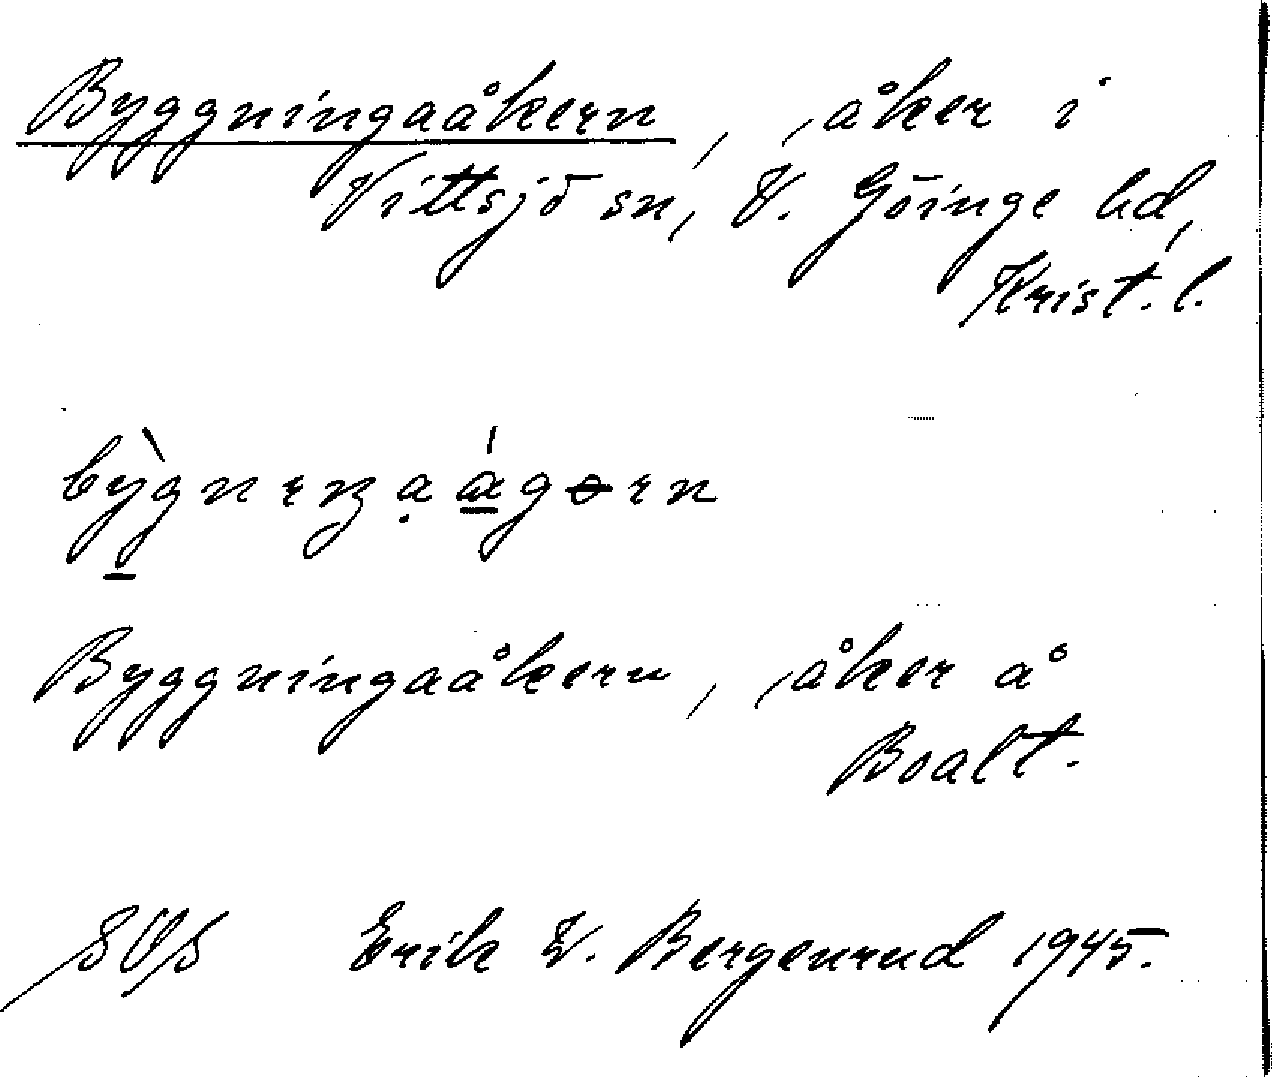 Byggningaåkern, åker i
Vittsjö sn, V. Göinge hd,
Krist. l.
Byggningaåkern, åker å
Boalt.
Erik W. Bergenrud 1945.